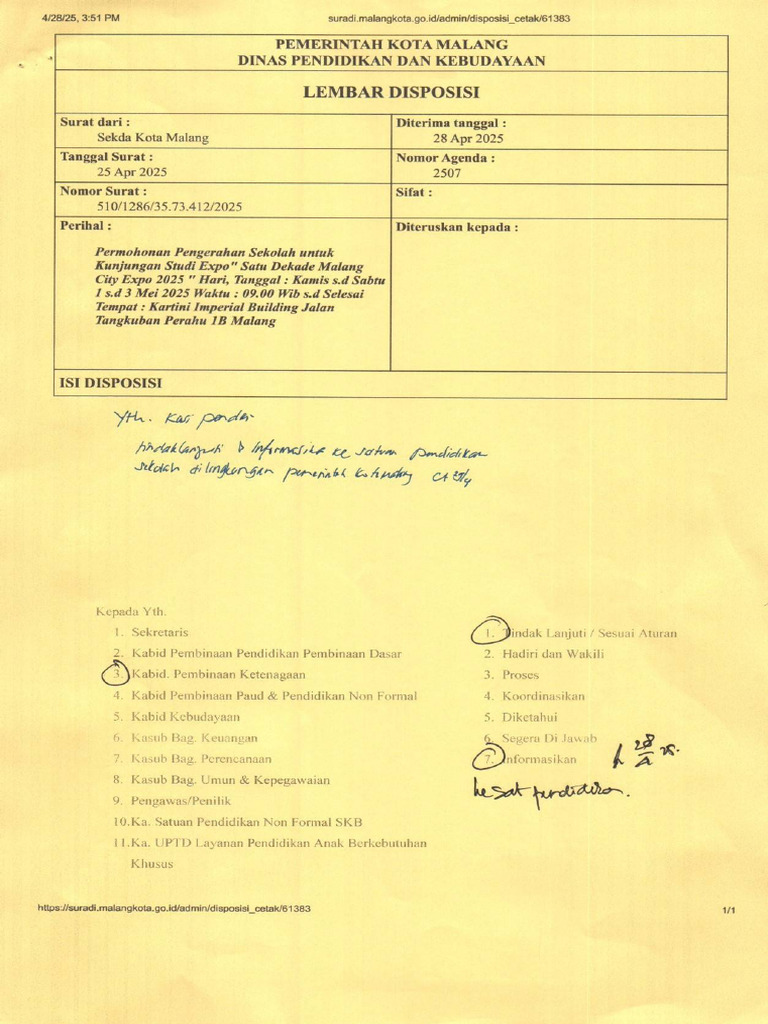 4/28/25, 3:51 PM
suradi.malangkota.go.id/admin/disposisi_cetak/61383
PEMERINTAH KOTA MALANG
DINAS PENDIDIKAN DAN KEBUDAYAAN
LEMBAR DISPOSISI
Surat dari :
Sekda Kota Malang
Diterima tanggal :
28 Apr 2025
Tanggal Surat :
25 Apr 2025
Nomor Agenda :
2507
Nomor Surat :
510/1286/35.73.412/2025
Sifat :
Perihal :
Permohonan Pengerahan Sekolah untuk
Kunjungan Studi Expo" Satu Dekade Malang
City Expo 2025 " Hari, Tanggal : Kamis s.d Sabtu
1 s.d 3 Mei 2025 Waktu : 09.00 Wib s.d Selesai
Tempat : Kartini Imperial Building Jalan
Tangkuban Perahu 1B Malang
Diteruskan kepada :
ISI DISPOSISI
Yth. Kasi
tindaklanjuti informasika ke satuan pendidikan
sekolah dilingkungan pemerintah
Kepada Yth.
1. Sekretaris
2. Kabid Pembinaan Pendidikan Pembinaan Dasar
3. Kabid. Pembinaan Ketenagaan
4. Kabid Pembinaan Paud & Pendidikan Non Formal
5. Kabid Kebudayaan
6. Kasub Bag. Keuangan
7. Kasub Bag. Perencanaan
8. Kasub Bag. Umun & Kepegawaian
9. Pengawas/Penilik
10.Ka. Satuan Pendidikan Non Formal SKB
11.Ka. UPTD Layanan Pendidikan Anak Berkebutuhan
Khusus
1. Tindak Lanjuti / Sesuai Aturan
2. Hadiri dan Wakili
3. Proses
4. Koordinasikan
5. Diketahui
6. Segera Di Jawab
7. Informasikan
28/4 25.
ke sat pendidikan.
https://suradi.malangkota.go.id/admin/disposisi_cetak/61383
1/1